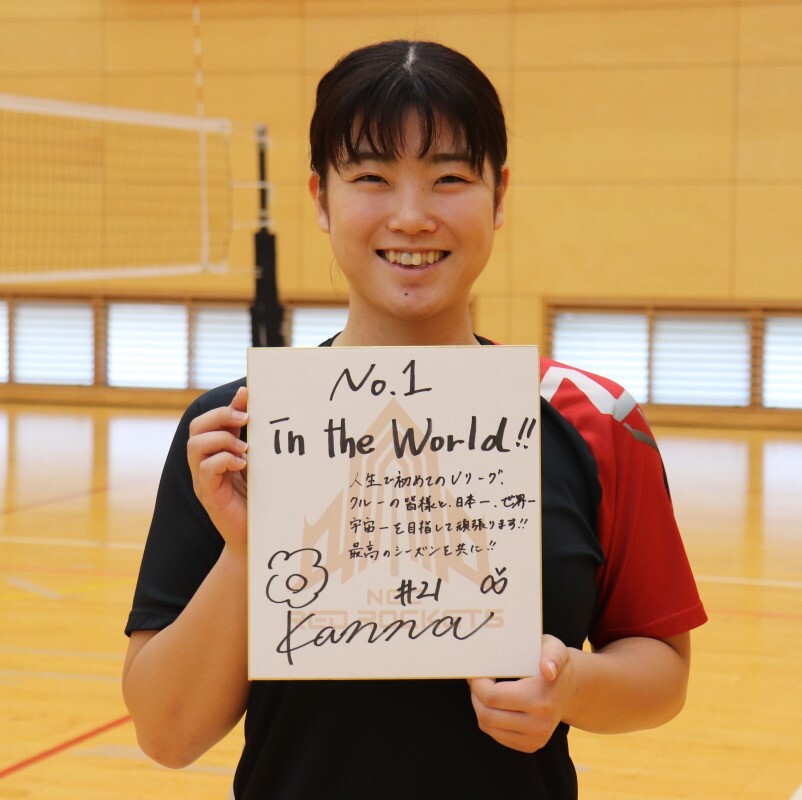 No.1
in the World!!
人生で初めてのVリーグ.
クルーの皆様と、日本一、世界一
宇宙一を目指して頑張ります!!
最高のシーズンを共に!!
#21
NEC
RED ROCKETS
Kanna